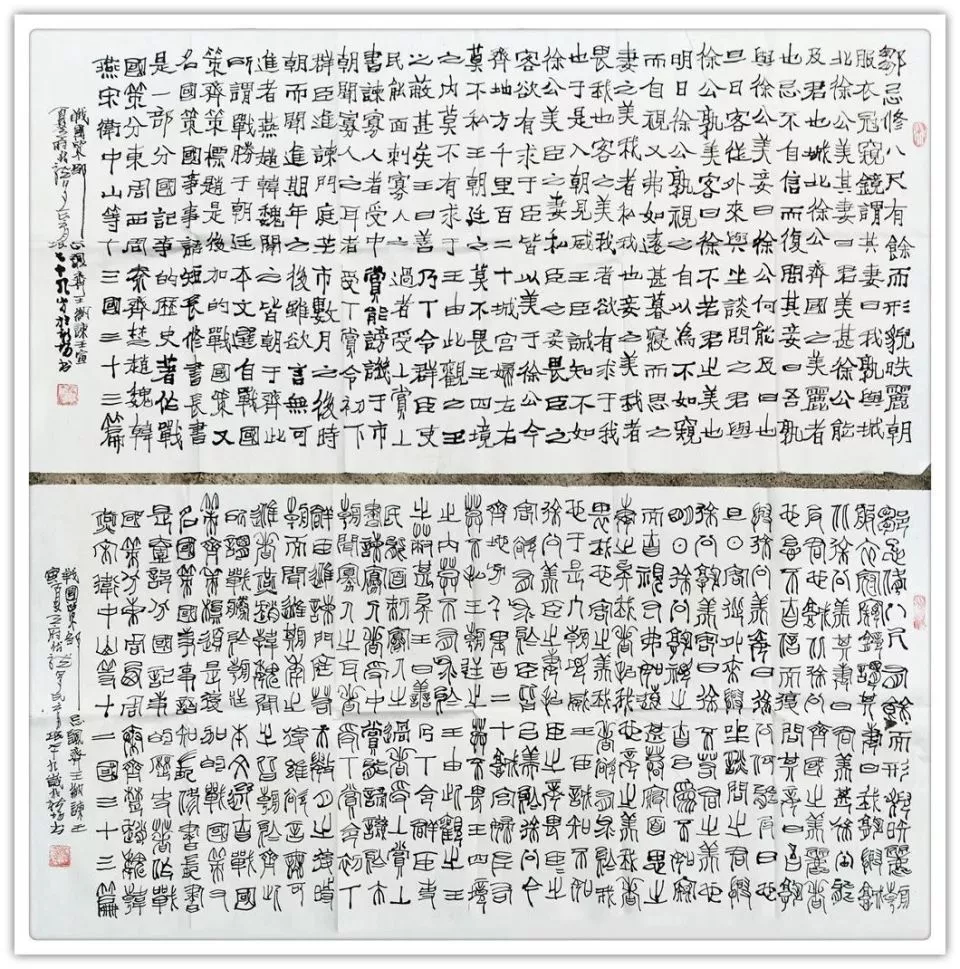 鄒忌修八尺有餘而形貌昳麗朝
服衣冠窺鏡謂其妻曰我孰與城
北徐公美其妻曰君美甚徐公能
及君也城北徐公齊國之美麗者
也忌不自信而復問其妾曰吾孰
與徐公美妾曰徐公何能及曰也
旦日客從外來與坐談問之君與
徐公孰美客曰徐不若君之美也
明日徐公孰視之自以為不如窺
而自視又弗如遠甚暮寢而思之
妻之美我者私我也妾之美我者
畏我也客之美我者欲有求于我
也于是入朝見威王臣誠知不如
徐公美臣之妻私臣之妾畏臣之
客欲有求于臣皆以美于徐公今
齊地方千里百二十城宮婦左右
莫不私王朝廷之莫不畏王四境
之內莫不有求于王由此觀之王
之蔽甚矣王曰善乃下令群臣吏
民能面刺寡人之過者受上賞上
書諫寡人者受中賞能謗譏于市
朝聞寡人之耳者受下賞令初下
群臣進諫門庭若市數月之後時
朝而聞進期年之後雖欲言無可
進者燕趙韓魏聞之皆朝于齊此
所謂戰勝于朝廷本文選自戰國
策齊策標趙是後加的戰國策又
名國策國事事語短長修書長書
是一部分國記事的歷史著作戰
國策分東周西周秦齊楚趙魏韓
燕宋衛中山等十三國三十三篇
戰國策鄒忌諷齊王納諫壬寅
鄒忌修八尺有餘而形貌昳麗朝
服衣冠窺鏡謂其妻曰我孰與城
北徐公美其妻曰君美甚徐公能
及君也城北徐公齊國之美麗者
也忌不自信而復問其妾曰吾孰
與徐公美妾曰徐公何能及曰也
旦日客從外來與坐談問之君與
徐公孰美客曰徐不若君之美也
明日徐公孰視之自以為不如窺
而自視又弗如遠甚暮寢而思之
妻之美我者私我也妾之美我者
畏我也客之美我者欲有求于我
也于是入朝見威王臣誠知不如
徐公美臣之妻私臣之妾畏臣之
客欲有求于臣皆以美于徐公今
齊地方千里百二十城宮婦左右
莫不私王朝廷之莫不畏王四境
之內莫不有求於王由此觀之王
之蔽甚矣王曰善乃下令群臣吏
民能面刺寡人之過者受上賞上
書諫寡人者受中賞能謗譏於市
朝聞寡人之耳者受下賞令初下
群臣進諫門庭若市數月之後時
朝而聞進期年之後雖欲言無可
進者燕趙韓魏聞之皆朝於齊此
所謂戰勝於朝廷本文選自戰國
策齊策標題是後加的戰國策又
名國策國事事語短長修書長書
是一部分國記事的歷史著作戰
國策分東周西周秦齊楚趙魏韓
燕宋衛中山等十二國三十三篇
戰國策鄒忌諷齊王納諫壬